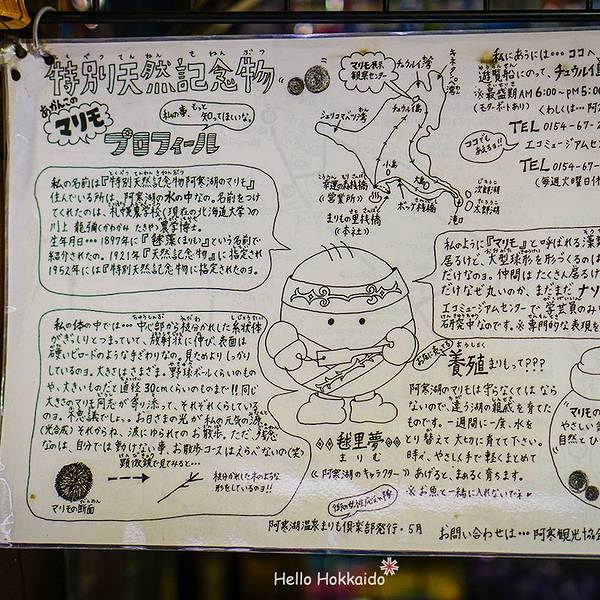 特別天然記念物
とくべつてんねんきねんぶつ
あかんこの
マリモ
プロフィール
私の事、もっと
知ってほしいな。
私の名前は『特別天然記念物 阿寒湖のマリモ』
住んでいる所は、阿寒湖の水の中なの。名前をつけ
てくれのは、札幌農学校(現在の北海道大学)の
川上 瀧彌(かわかみ たきや)農学博士。
生年月日…1897年に『毬藻(まりも)』という名前で
紹介されたの。1921年『天然記念物』に指定され
1952年には『特別天然記念物』に指定されたのヨ。
私の体の中では…中心部から枝分かれした糸状体
がぎっしりとつまっていて、放射状に伸び、表面は
硬いビロードのような手ざわりなの。見ためよりしっかり
しているのヨ。大きさはさまざま。野球ボールくらいのもの
や、大きいものだと直径30cmくらいのものまで!!同じ
大きさのマリモ同志が寄り添って、それぞれくらしている
のヨ。不思議でしょ。お日さまの光が私の元気の源
(光合成)それからね、波にゆられてのお散歩。ただ、残念
なのは、自分では動けない事。お散歩コースはえらべないの(笑)
顕微鏡で見てみると…
マリモの断面
枝分かれした木のような
形をしているのヨ!!
マリモ展示
観察センター
チュウルイ湾
キネタンペ湾
チュウルイ島
シュリコマベツ湾
小島
大島
幸運の森桟橋
《営業所》
ボッケ桟橋
まりもの里桟橋
《本社》
じろうこ
次郎湖
たろうこ
太郎湖
滝口
私にあうには…ココへ
遊覧船にのって、チュウルイ島
※最盛期AM6:00~PM5:00
(モーターボートあり) くわしくは…阿
TEL 0154-67-2
ココでも
あえるヨ!!
エコミュージアムセン
TEL 0154-67-
(毎週火曜日休
私のように『マリモ』と呼ばれる藻
居るけど、大型球形を形づくるのは
だけなのヨ。仲間はたくさん居るけ
だけなぜ丸いのか、まだまだナゾ
エコミュージアムセンターで、学芸員のみ
研究中なのです。※専門的な表現を
養殖まりもって???
ようしょく
阿寒湖のマリモは守らなくてはなら
ないので、違う湖の親戚を育てた
ものです。一週間に一度、水を
とり替えて大切に育てて下さい。
時々、やさしく手で軽くまとめて
あげると、まぁるく育ちます。
※お魚と一緒に入れないでネ♥
毬里夢
まりむ
《阿寒湖のキャラクター》
阿寒湖温泉まりも倶楽部発行・5月
お問い合わせは…阿寒観光協会
マリモの
やさしい
自然とひ
Hello Hokkaido